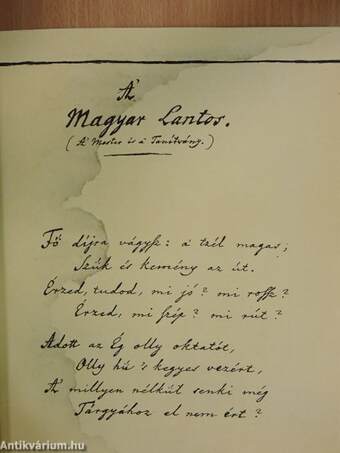 A'
Magyar Lantos.
(A' Mester és a Tanítvány.)
Fő díjra vágysz: a tzél magas;
Szűk és kemény az út.
Érzed, tudod, mi jó? mi rossz?
Érzed, mi szép? mi rút?
Adott az Ég olly oktatót,
Olly hű 's kegyes vezért,
A' millyen nélkűl senki még
Tárgyához el nem ért?
Antikvárium.hu